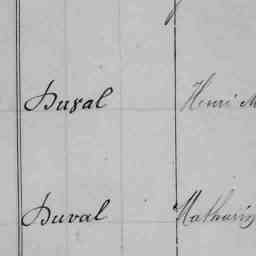 Duval Henri M
Duval Mathurin